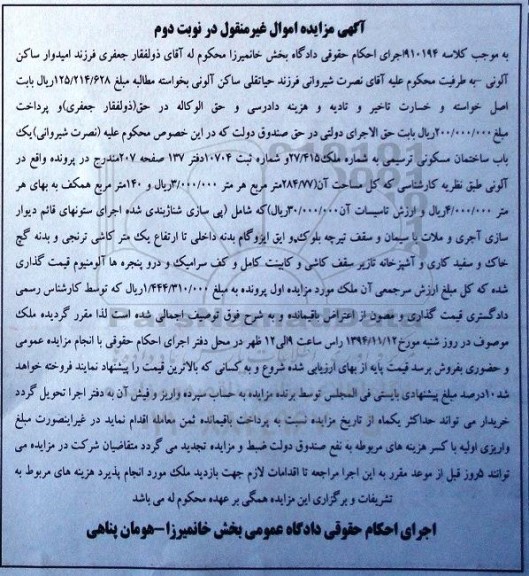 آگهی مزایده اموال غیرمنقول در نوبت دوم
به موجب کلاسه ۹۱۰۱۹۴اجرای احکام حقوقی دادگاه بخش خانمیرزا محکوم له آقای ذولفقار جعفری فرزند امیدوار ساکن
آلونی -به طرفیت محکوم علیه آقای نصرت شیروانی فرزند حیاتقلی ساکن آلونی بخواسته مطالبه مبلغ ۱۲۵/۲۱۴/۶۲۸ریال بابت
اصل خواسته و خسارت تاخیر و تادیه و هزینه دادرسی و حق الوکاله در حق(ذولفقار جعفری)و پرداخت
مبلغ۲۰۰/۰۰۰/۰۰۰ریال بابت حق الاجرای دولتی در حق صندوق دولت که در این خصوص محکوم علیه (نصرت شیروانی)یک
باب ساختمان مسکونی ترسیمی به شماره ملک۲۷/۴۱۵و شماره ثبت ۱۰۷۰۴دفتر ۱۳۷ صفحه ۲۰۷مندرج در پرونده واقع در
آلونی طبق نظریه کارشناسی که کل مساحت آن(۲۸۴/۷۷متر مربع هر متر ۳/۰۰۰/۰۰۰ریال و ۱۴۰متر مربع همکف به بهای هر
متر ۴/۰۰۰/۰۰۰ریال و ارزش تاسیسات آن۳۰/۰۰۰/۰۰۰ریال)که شامل (پی سازی شناژبندی شده اجرای ستونهای قائم دیوار
سازی آجری و ملات با سیمان و سقف تیرچه بلوک،و ایق ایزوگام بدنه داخلی تا ارتفاع یک متر کاشی ترنجی و بدنه گچ
خاک و سفید کاری و آشپزخانه تازیر سقف کاشی و کابینت کامل و کف سرامیک و درو پنجره ها آلومنیوم قیمت گذاری
شده که کل مبلغ ارزش سرجمعی آن ملک مورد مزایده اول پرونده به مبلغ ۱/۴۴۴/۳۱۰/۰۰۰ریال که توسط کارشناس رسمی
دادگستری قیمت گذاری و مصون از اعتراض باقیمانده و به شرح فوق توصیف اجمالی شده است لذا مقرر گردیده ملک
موصوف در روز شنبه مورخ۱۳۹۴/۱۱/۱۲ راس ساعت ۹الی۱۲ ظهر در محل دفتر اجرای احکام حقوقی با انجام مزایده عمومی
و حضوری بفروش برسد قیمت پایه از بهای ارزیابی شده شروع و به کسانی که بالاترین قیمت را پیشنهاد نمایند فروخته خواهد
شد۱۰درصد مبلغ پیشنهادی بایستی فی المجلس توسط برنده مزایده به حساب سپرده واریز و فیش آن به دفتر اجرا تحویل گردد
خریدار می تواند حداکثر یکماه از تاریخ مزایده نسبت به پرداخت باقیمانده ثمن معامله اقدام نماید در غیراینصورت مبلغ
واریزی اولیه با کسر هزینه های مربوطه به نفع صندوق دولت ضبط و مزایده تجدید می گردد متقاضیان شرکت در مزایده می
توانند ۵روز قبل از موعد مقرر به این اجرا مراجعه تا اقدامات لازم جهت بازدید ملک مورد انجام پذیرد هزینه های مربوط به
تشریفات و برگزاری این مزایده همگی بر عهده محکوم له می باشد
اجرای احکام حقوقی دادگاه عمومی بخش خانمیرزا-هومان پناهی